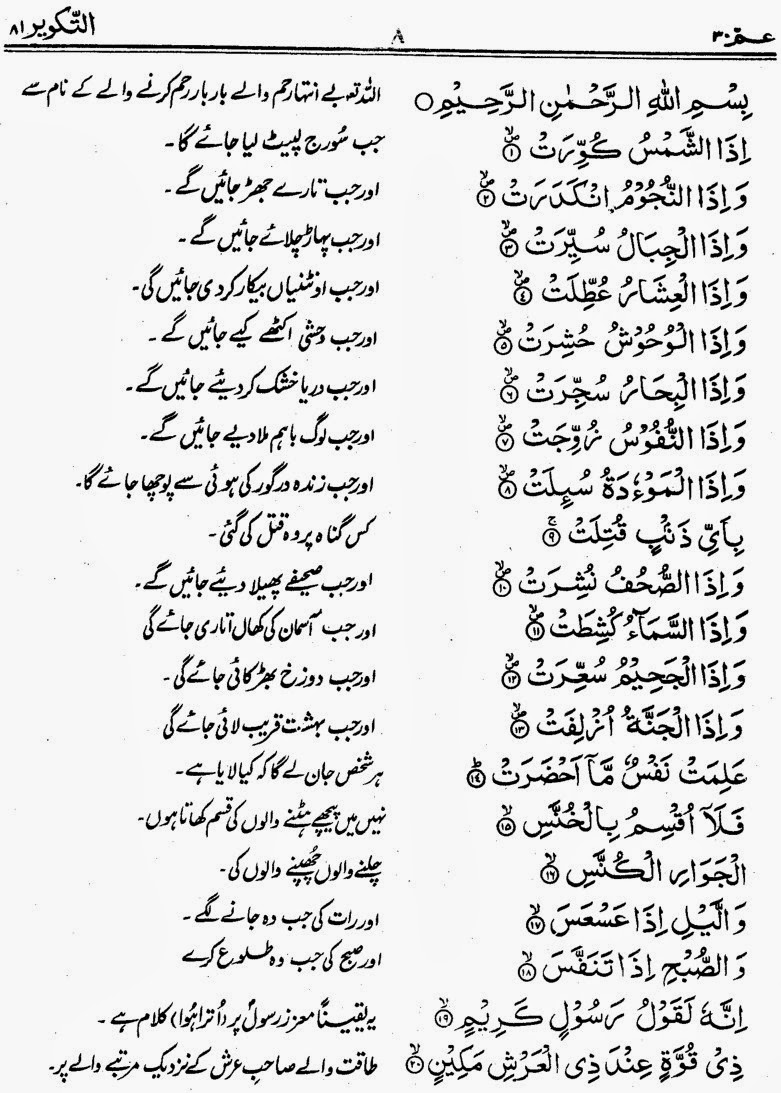 عمّ ۳۰ ۸ التّکویر ۸۱
بِسْمِ اللهِ الرَّحْمٰنِ الرَّحِيْمِ ○ اللہ تعہ بے انتہا رحم والے بار بار رحم کرنے والے کے نام سے
اِذَا الشَّمْسُ كُوِّرَتْ ۝۱ جب سُورج لپیٹ لیا جائے گا۔
وَاِذَا النُّجُوْمُ انْكَدَرَتْ ۝۲ اور جب تارے جھڑ جائیں گے۔
وَاِذَا الْجِبَالُ سُيِّرَتْ ۝۳ اور جب پہاڑ چلائے جائیں گے۔
وَاِذَا الْعِشَارُ عُطِّلَتْ ۝۴ اور جب اونٹنیاں بیکار کر دی جائیں گی۔
وَاِذَا الْوُحُوْشُ حُشِرَتْ ۝۵ اور جب وحشی اکٹھے کیے جائیں گے۔
وَاِذَا الْبِحَارُ سُجِّرَتْ ۝۶ اور جب دریا خشک کر دیئے جائیں گے۔
وَاِذَا النُّفُوْسُ زُوِّجَتْ ۝۷ اور جب لوگ باہم ملا دیے جائیں گے۔
وَاِذَا الْمَوْءٗدَةُ سُىِٕلَتْ ۝۸ اور جب زندہ درگور کی ہوئی سے پوچھا جائے گا۔
بِاَىِّ ذَنْۢبٍ قُتِلَتْ ۝۹ کس گناہ پر وہ قتل کی گئی۔
وَاِذَا الصُّحُفُ نُشِرَتْ ۝۱۰ اور جب صحیفے پھیلا دیئے جائیں گے۔
وَاِذَا السَّمَآءُ كُشِطَتْ ۝۱۱ اور جب آسمان کی کھال اتاری جائے گی
وَاِذَا الْجَحِيْمُ سُعِّرَتْ ۝۱۲ اور جب دوزخ بھڑکائی جائے گی۔
وَاِذَا الْجَنَّةُ اُزْلِفَتْ ۝۱۳ اور جب بہشت قریب لائی جائے گی
عَلِمَتْ نَفْسٌ مَّاۤ اَحْضَرَتْ ۝۱۴ ہر شخص جان لے گا کہ کیا لایا ہے۔
فَلَاۤ اُقْسِمُ بِالْخُنَّسِ ۝۱۵ نہیں میں پیچھے ہٹنے والوں کی قسم کھاتا ہوں۔
الْجَوَارِ الْكُنَّسِ ۝۱۶ چلنے والوں چھپنے والوں کی۔
وَالَّيْلِ اِذَا عَسْعَسَ ۝۱۷ اور رات کی جب وہ جانے لگے۔
وَالصُّبْحِ اِذَا تَنَفَّسَ ۝۱۸ اور صبح کی جب وہ طلوع کرے
اِنَّهٗ لَقَوْلُ رَسُوْلٍ كَرِيْمٍ ۝۱۹ یہ یقیناً معزز رسول پر (اُترا ہوا) کلام ہے۔
ذِىْ قُوَّةٍ عِنْدَ ذِى الْعَرْشِ مَكِيْنٍ ۝۲۰ طاقت والے صاحبِ عرش کے نزدیک مرتبے والے پر۔